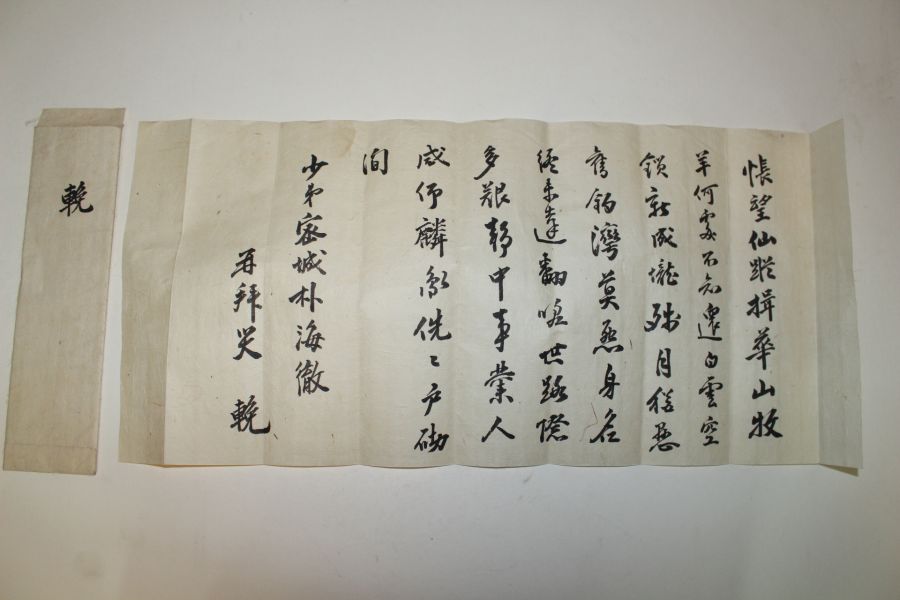 悵望仙蹤揖華山牧
羊何處不知還白雲空
鎖新成壠殘月猶懸
舊釣灣莫身名
終未達翻嗟世路險
多艱靜中事業人
咸仰麟鳳侁〻戶砌
間
少弟密城朴海徹
再拜哭 輓
輓